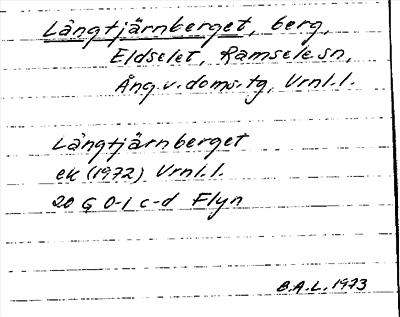 Långtjärnberget, berg,
Eldselet, Ramsele sn,
Ång. v. doms. tg, Vrnl. l.
Långtjärnberget
ek (1972) Vrnl. l.
20 G 0-1 c-d Flyn
B.A.L. 1973